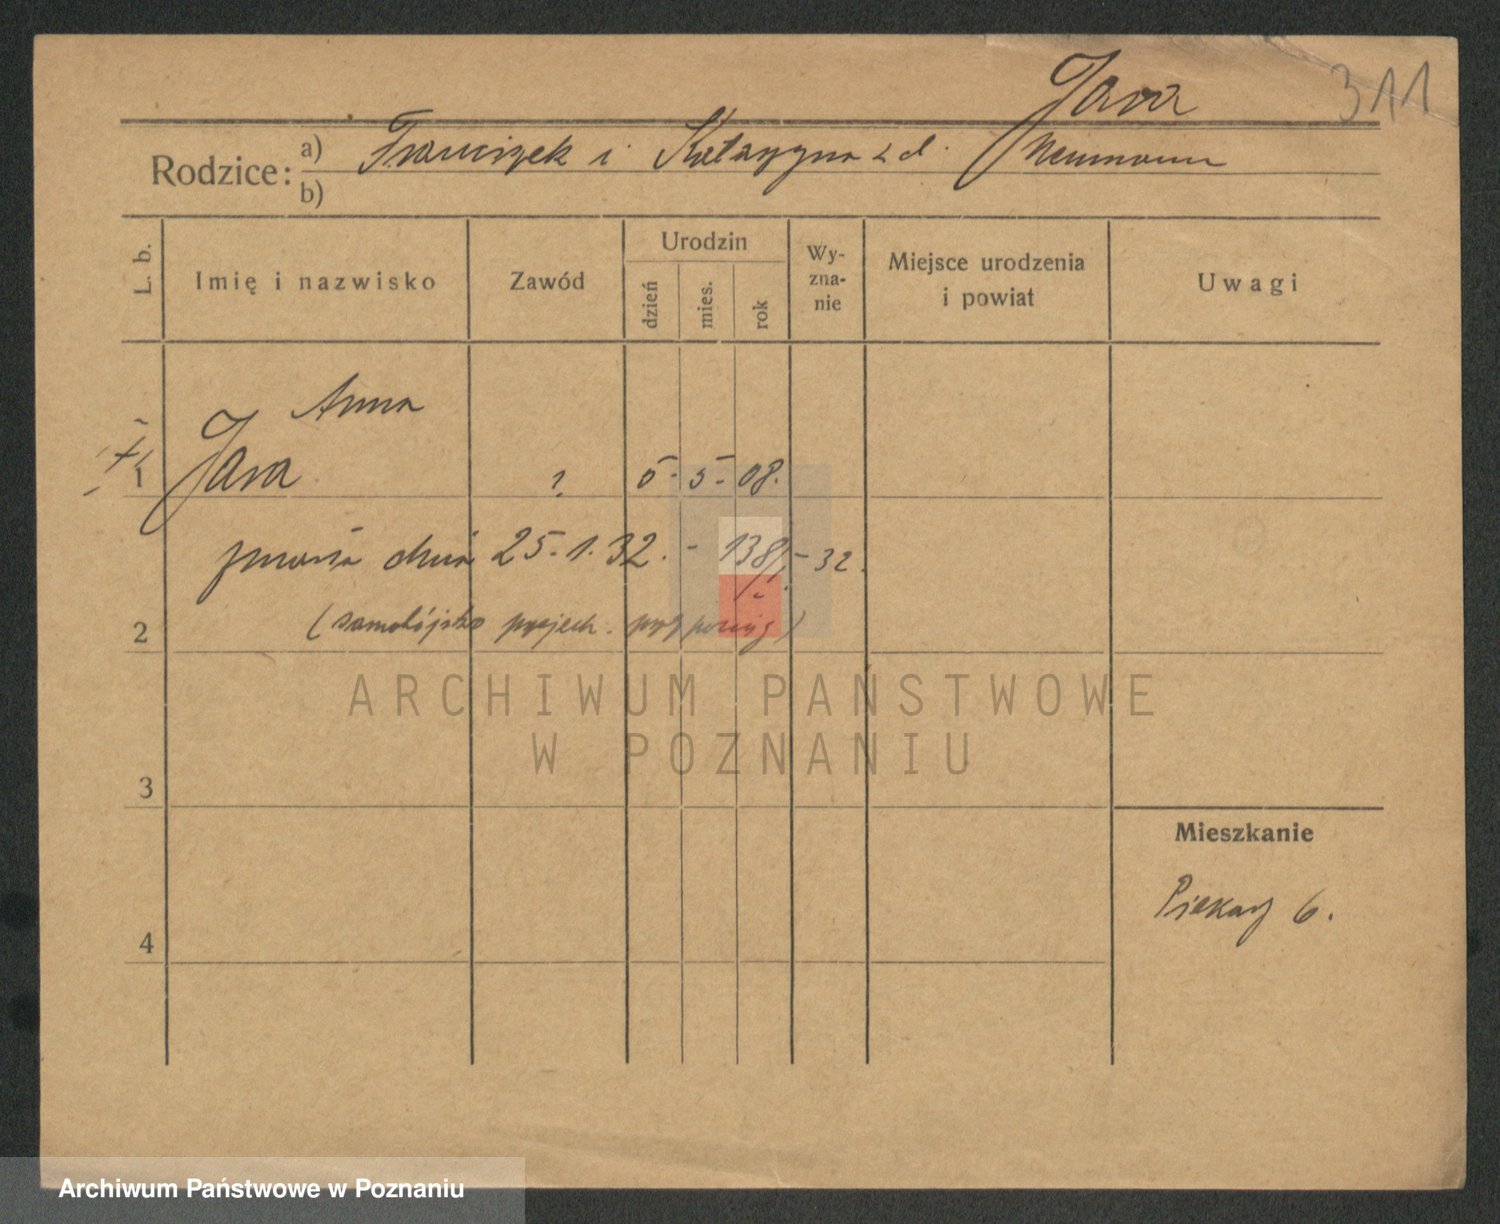 Jara 311
Rodzice: a) Franciszek i Katarzyna z d. Neumann
b)
L. b. Imię i nazwisko Zawód Urodzin dzień mies. rok Wy-zna-nie Miejsce urodzenia i powiat Uwagi
Anna
1 Jara ? 5. 5. 08.
zmarła dnia 25.1.32. - 138/I. - 32.
2 (samobójstwo przejech. przez pociąg)
ARCHIWUM PAŃSTWOWE
W POZNANIU
3
Mieszkanie
Piekary 6.
4
Archiwum Państwowe w Poznaniu